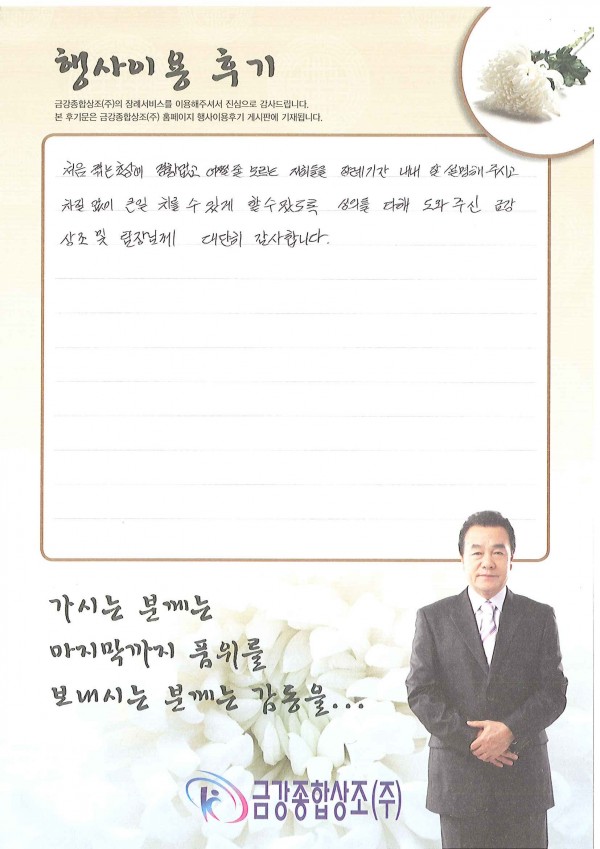 행사이용 후기
금강종합상조(주)의 장례서비스를 이용해주셔서 진심으로 감사드립니다.
본 후기문은 금강종합상조(주) 홈페이지 행사이용후기 게시판에 기재됩니다.
처음 겪는 초상에 경황없고 어쩔 줄 모르는 저희들을 장례기간 내내 잘 설명해 주시고
차질 없이 큰일 치를 수 있게 할 수 있도록 성의를 다해 도와 주신 금강
상조 및 팀장님께 대단히 감사합니다.
가시는 분께는
마지막까지 품위를
보내시는 분께는 감동을...
금강종합상조(주)